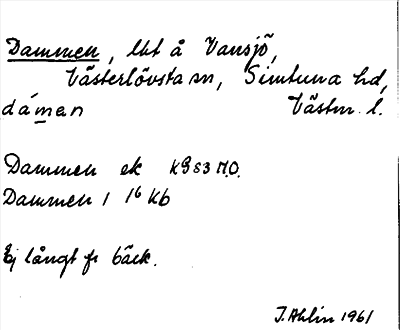 Dammen, lht å Vansjö,
Västerlövsta sn, Simtuna hd,
dámen Västm. l.
Dammen ek KB S3 N.O.
Dammen 1 1⁶ Kb
Ej långt fr bäck.
J. Ahlin 1961